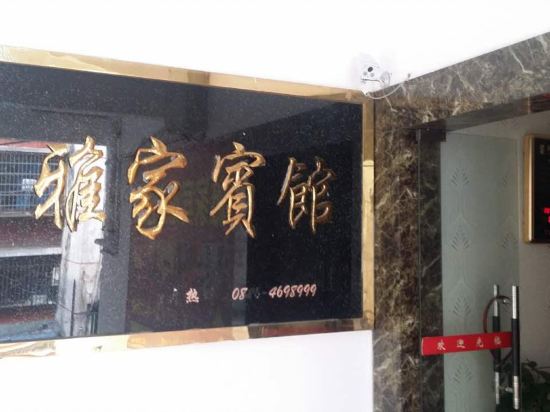 雅家賓館
热 08 -4698999
欢迎光临